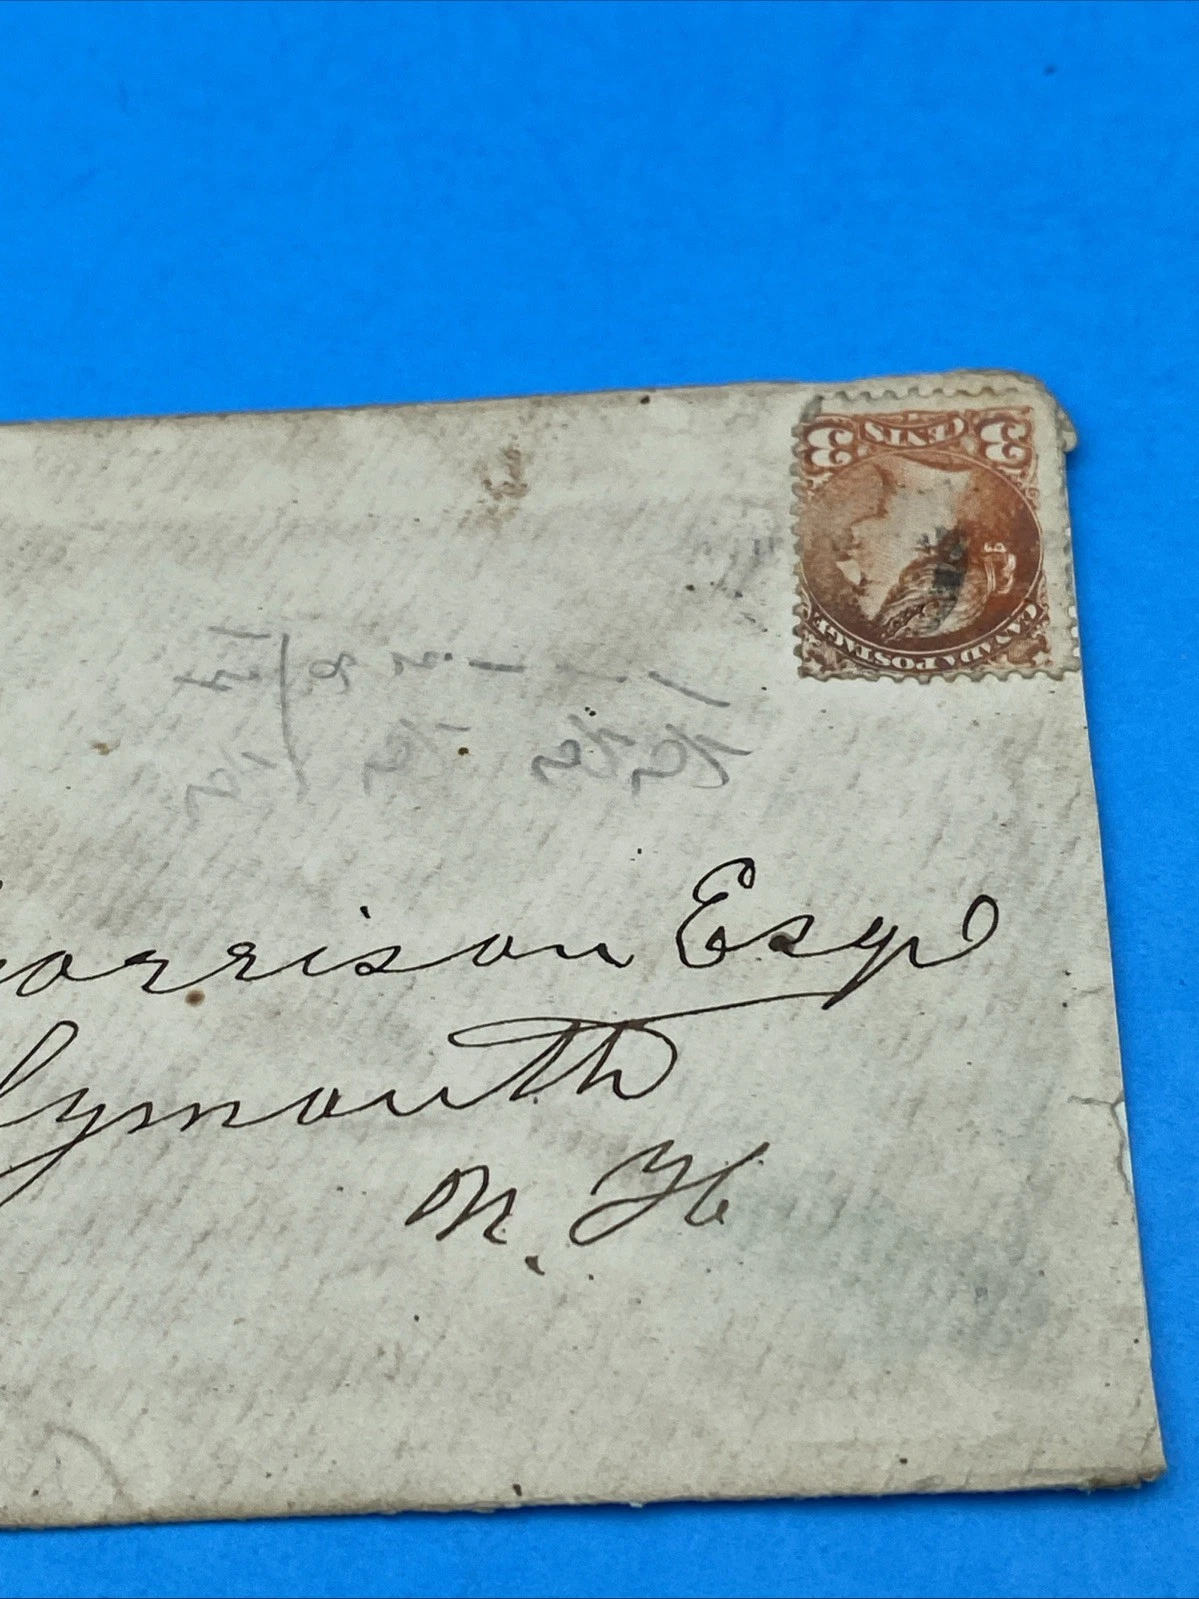 3 CENTS 3
CANADA POSTAGE
orrison Esq
lymouth
N. H